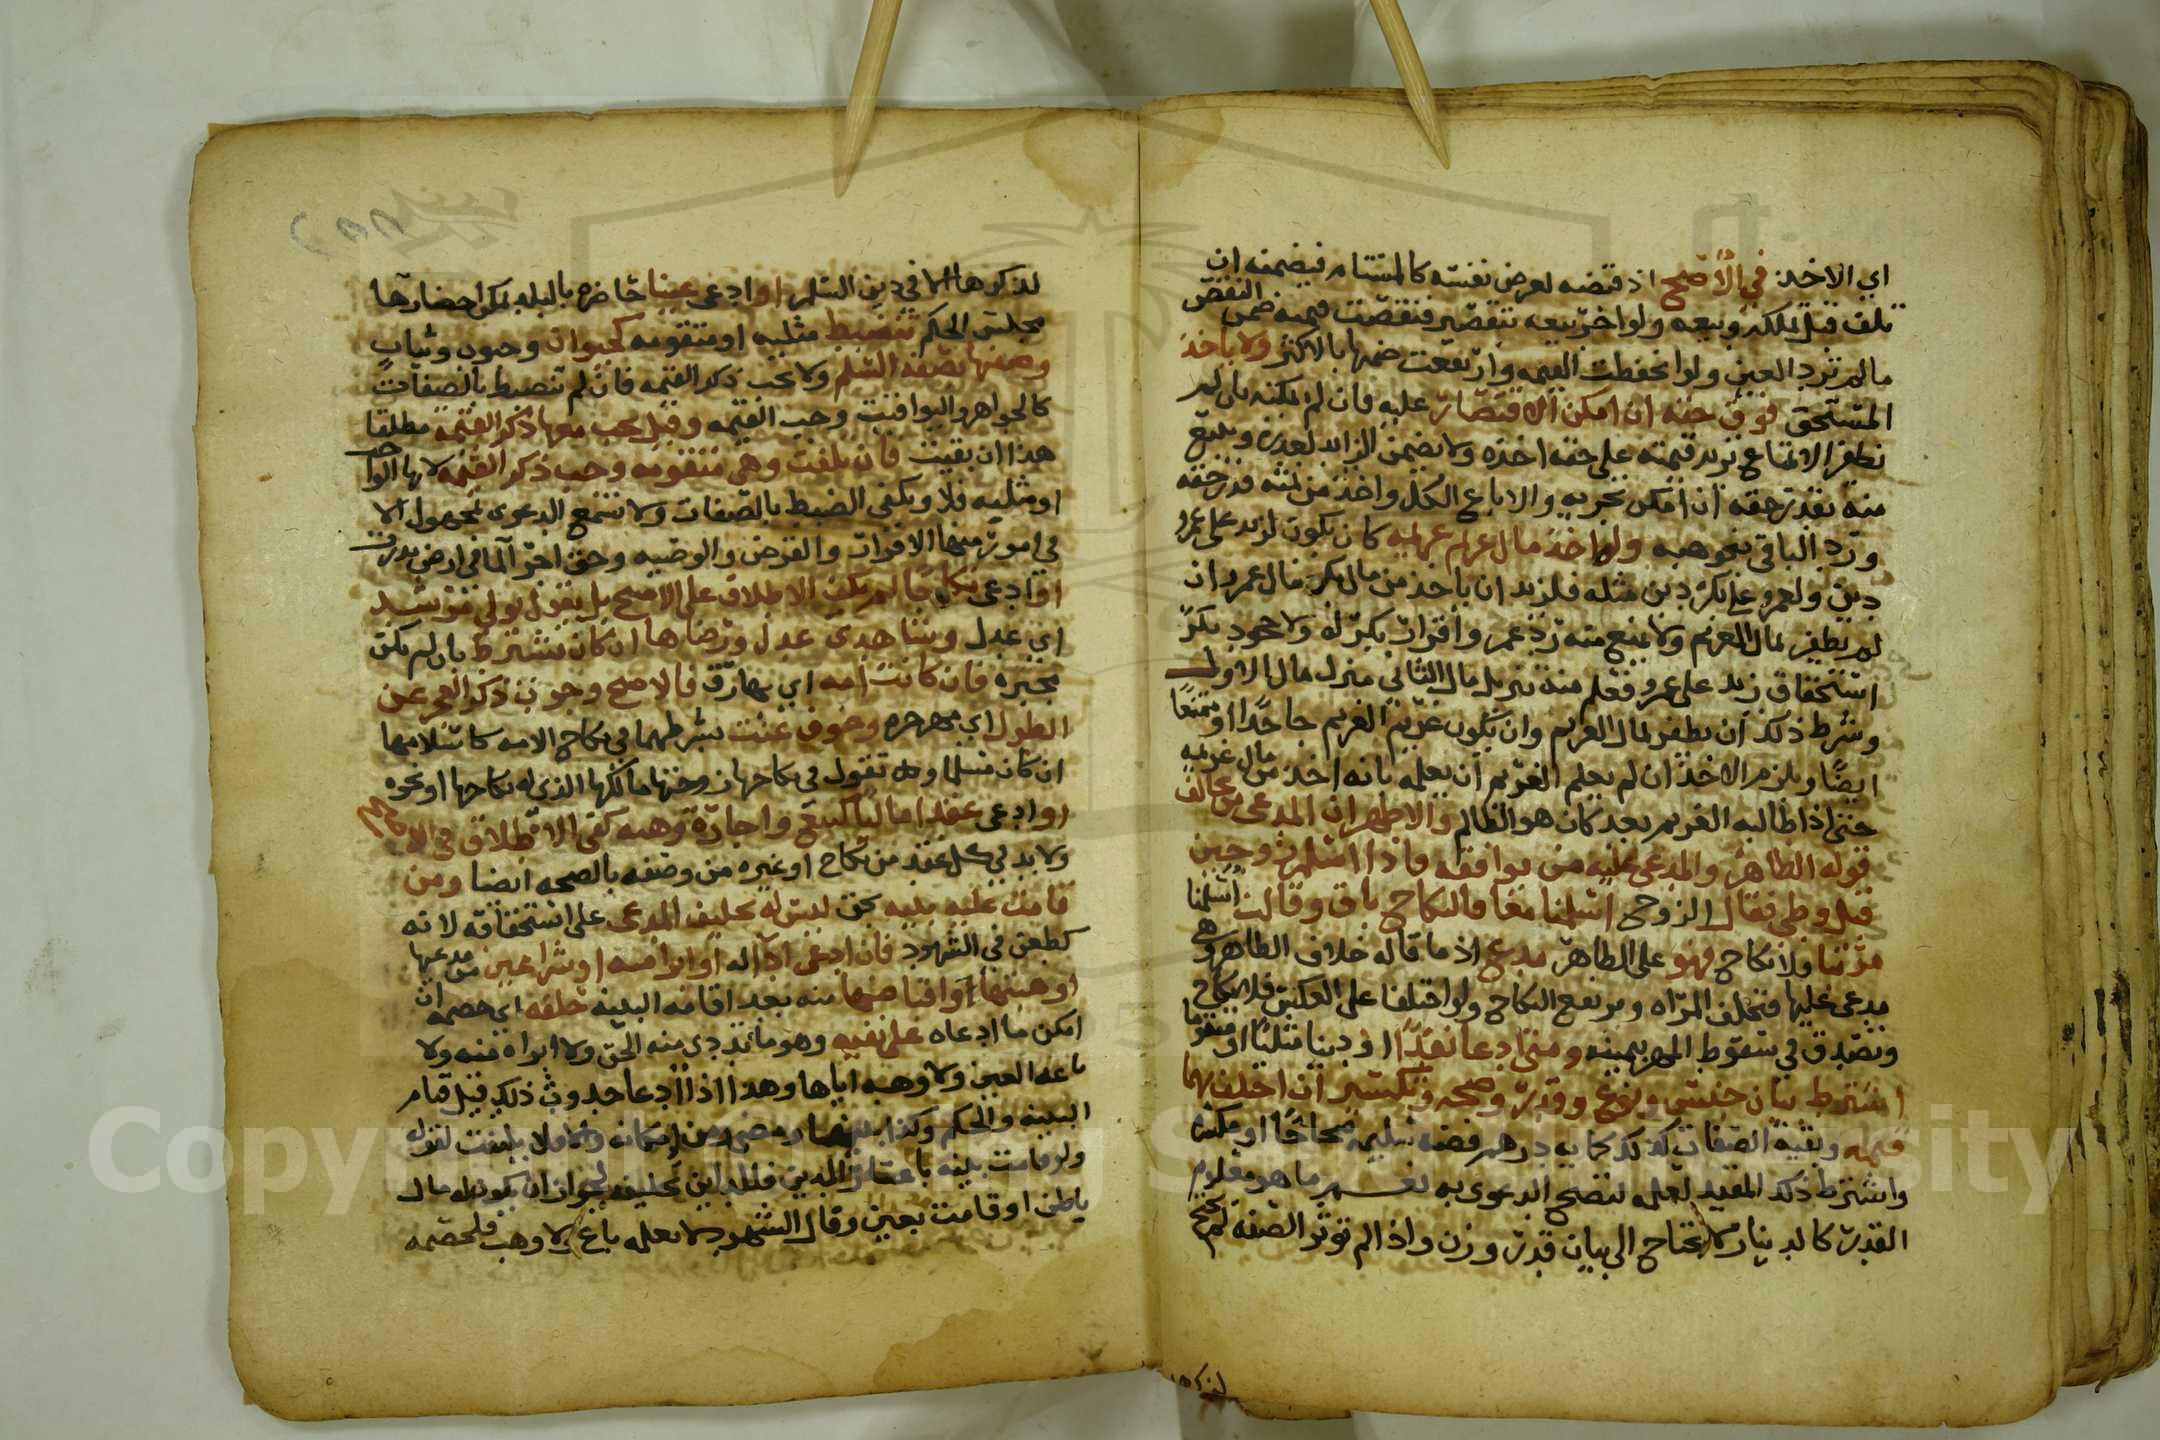 اي الاخذ في الاصح اذ قبضه لعرض نفسه كالمستام فيضمنه ان
تلف قبل تملكه وبيعه ولو اخر بيعه بتقصير فنقصت قيمته ضمن النقص
ما لم ترد العين ولو انخفضت القيمه وارتفعت ضمنها بالاكثر ولا ياخذ
المستحق فوق حقه ان امكن الاقتصار عليه فان لم يمكنه بان لم
يظفر الا بمتاع تزيد قيمته على حقه اخذه ولا يضمن الزايد لعذره ويبيع
منه بقدر حقه ان امكن بتجزيه والا باع الكل واخذ من ثمنه قدر حقه
ورد الباقي بنحو هبه وله اخذ مال غريم غريمه كان يكون لزيد على عمرو
دين ولعمرو على بكر دين مثله فلزيد ان ياخذ من مال بكر مال عمرو ان
لم يظفر بمال الغريم ولا يمنع منه رد عمرو اقرار بكر له ولا جحود بكر
استحقاق زيد على عمرو فعلم منه تنزيل مال الثاني منزل مال الاول
وشرط ذلك ان يظفر بمال الغريم وان يكون غريم الغريم جاحدا او ممتنعا
ايضا ويلزم الاخذ ان لم يعلم الغريم ان يعلمه بانه اخذ من مال غريمه
حتى اذا طالبه الغريم بعد كان هو الظالم والاظهر ان المدعي من يخالف
قوله الظاهر والمدعى عليه من يوافقه فاذا اسلم زوجين
قبل وطي فقال الزوج اسلمنا معا فالنكاح باق وقالت اسلمنا
مرتبا ولا نكاح فهو على الظاهر مدع اذ ما قاله خلاف الظاهر وهي
مدعى عليها فتحلف المراه ويرتفع النكاح ولو اختلفا على العكس فلا نكاح
وتصدق في سقوط المهر بيمينه ومتى ادعا نقدا او دينا مثليا او متقوما
اشترط بيان جنس ونوع وقدر وصحه وتكسير ان اختلف بهما
قيمه وبقية الصفات كذلك كمايه درهم فضه سليمه صحاحا او مكسره
واشترط ذلك المفيد لعلمه لتصح الدعوى به نعم ما هو معلوم
القدر كالدينار لا يحتاج الى بيان قدر وزن واذا لم تؤثر الصفه لم يحتج
لذكرها
لذكرها الا في دين السلم او ادعى عينا حاضره بالبلد يمكن احضارها
مجلس الحكم تنضبط مثليه او متقومه كحيوان وحبوب وثياب
وصفها بصفة السلم ولا يجب ذكر القيمه فان لم تنضبط بالصفات
كالجواهر واليواقيت وجب القيمه وقيل يجب معها ذكر القيمه مطلقا
هذا ان بقيت فان تلفت وهي متقومه وجب ذكر القيمه لانها الواجب
او مثليه فلا ويكفي الضبط بالصفات ولا تسمع الدعوى بمجهول الا
في امور منها الاقرار والقرض والوصيه وحق اجرا الما في ارض بدرت
او ادعى نكاحا لم يكف الاطلاق على الاصح بل يقول بولي مرشد
اي عدل وشاهدي عدل ورضاها ان كان يشترط بان لم تكن
مجبره فان كانت امه اي بها رق فالاصح وجوب ذكر العجز عن
الطول اي مهر حره وخوف عنت بشرطهما في نكاح الامه كاسلامها
ان كان مسلما و تقول في نكاحها زوجنيها مالكها الذي له نكاحها او نحوه
او ادعى عقدا ماليا كبيع واجاره وهبه كفى الاطلاق في الاصح
ولا بد في كل عقد من نكاح او غيره من وصفه بالصحه ايضا ومن
قامت عليه بينه بحق ليس له تحليف المدعي على استحقاقه لانه
كطعن في الشهود فان ادعى ادا له او ابرا منه او شرا عين من مدعيها
او هبتها او اقباضها منه بعد اقامه البينه حلفه اي خصمه ان
امكن ما ادعاه على نفيه وهو ما تادى منه الحق ولا ابراه منه ولا
باعه العين ولا وهبه اياها وهذا اذا ادعا حدوث ذلك قبل قيام
البينه والحكم وكذا بينهما ومضى زمن امكانه والا فلا يلتفت لقوله
ولو قامت بينه باعسار المدين فللداين تحليفه لجواز ان يكون له مال
باطن او قامت بعين وقال الشهود لا نعلمه باع ولا وهب فلخصمه